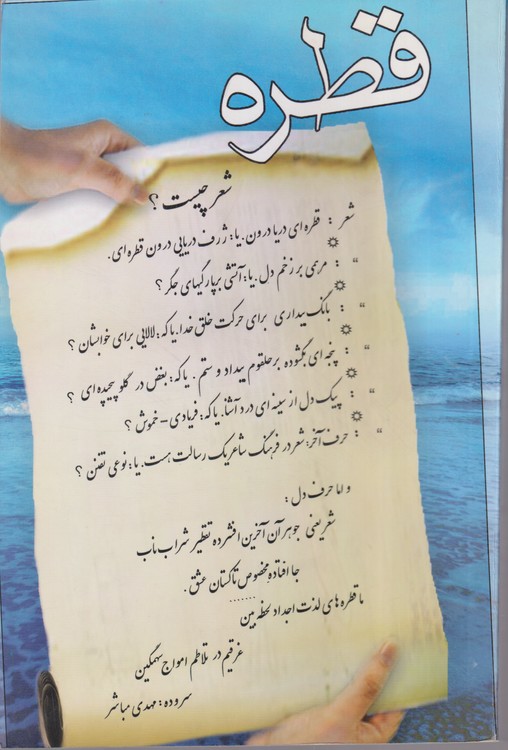 قطره
شعر چیست ؟
شعر : قطره ای دریا درون. یا: ژرف دریایی درون قطره ای.
" : مرهمی بر زخم دل. یا: آتشی بر پارگیهای جگر ؟
" : بانگ بیداری برای حرکت خلق خدا. یا که: لالایی برای خوابشان ؟
" : پنجه ای بگشوده بر حلقوم بیداد و ستم. یا که: بغض در گلو پیچیده ای ؟
" : پیک دل از سینه ای درد آشنا. یا که: فریادی - خموش ؟
" : حرف آخر: شعر در فرهنگ شاعر یک رسالت هست. یا: نوعی تفنن ؟
و اما حرف دل :
شعر یعنی جوهر آن آخرین افشرده تقطیر شراب ناب
جا افتاده مخصوص تاکستان عشق .
.......
ما قطره های لذت اجداد لحظه بین
غرقیم در تلاطم امواج سهمگین
سروده : مهدی مباشر